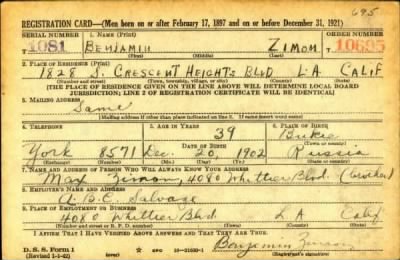 695
REGISTRATION CARD—(Men born on or after February 17, 1897 and on or before December 31, 1921)
SERIAL NUMBER 1. NAME (Print) ORDER NUMBER
U1081 BENJAMIN ZIMON 10695
(First) (Middle) (Last)
2. PLACE OF RESIDENCE (Print)
1828 S. CRESCENT HEIGHTS BLVD L.A. CALIF
(Number and street) (Town, township, village, or city) (County) (State)
[THE PLACE OF RESIDENCE GIVEN ON THE LINE ABOVE WILL DETERMINE LOCAL BOARD
JURISDICTION; LINE 2 OF REGISTRATION CERTIFICATE WILL BE IDENTICAL]
3. MAILING ADDRESS
Same
[Mailing address if other than place indicated on line 2. If same insert word same]
4. TELEPHONE 5. AGE IN YEARS 6. PLACE OF BIRTH
39
York 8571 DATE OF BIRTH (Town or county)
Dec. 20, 1902 Russia
(Exchange) (Number) (Mo.) (Day) (Yr.) (State or country)
7. NAME AND ADDRESS OF PERSON WHO WILL ALWAYS KNOW YOUR ADDRESS
Max Zimon, 4080 Whittier Blvd.
8. EMPLOYER'S NAME AND ADDRESS
A.B.C. Salvage
9. PLACE OF EMPLOYMENT OR BUSINESS
4080 Whittier Blvd L A Calif
(Number and street or R. F. D. number) (Town) (County) (State)
I AFFIRM THAT I HAVE VERIFIED ABOVE ANSWERS AND THAT THEY ARE TRUE.
D. S. S. Form 1
(Revised 1-1-42) GPO 16—21630-1 Benjamin Zimon